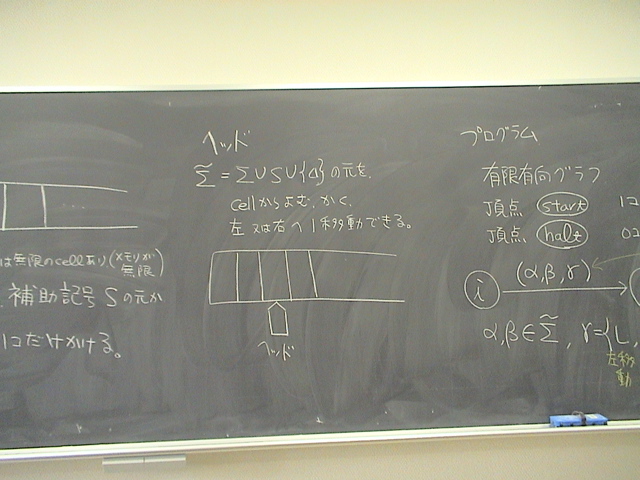 は無限のcellあり(メモリが
無限)
補助記号 Sの元か
にだけかける。
ヘッド
Σ̃ = Σ∪S∪{Δ}の元を,
cellからよむ,かく,
左又は右へ1移動できる。
ヘッド
プログラム
有限有向グラフ
頂点 start
頂点 halt
(α,β,γ)
i
α,β∈Σ̃, γ={L,
左移
動